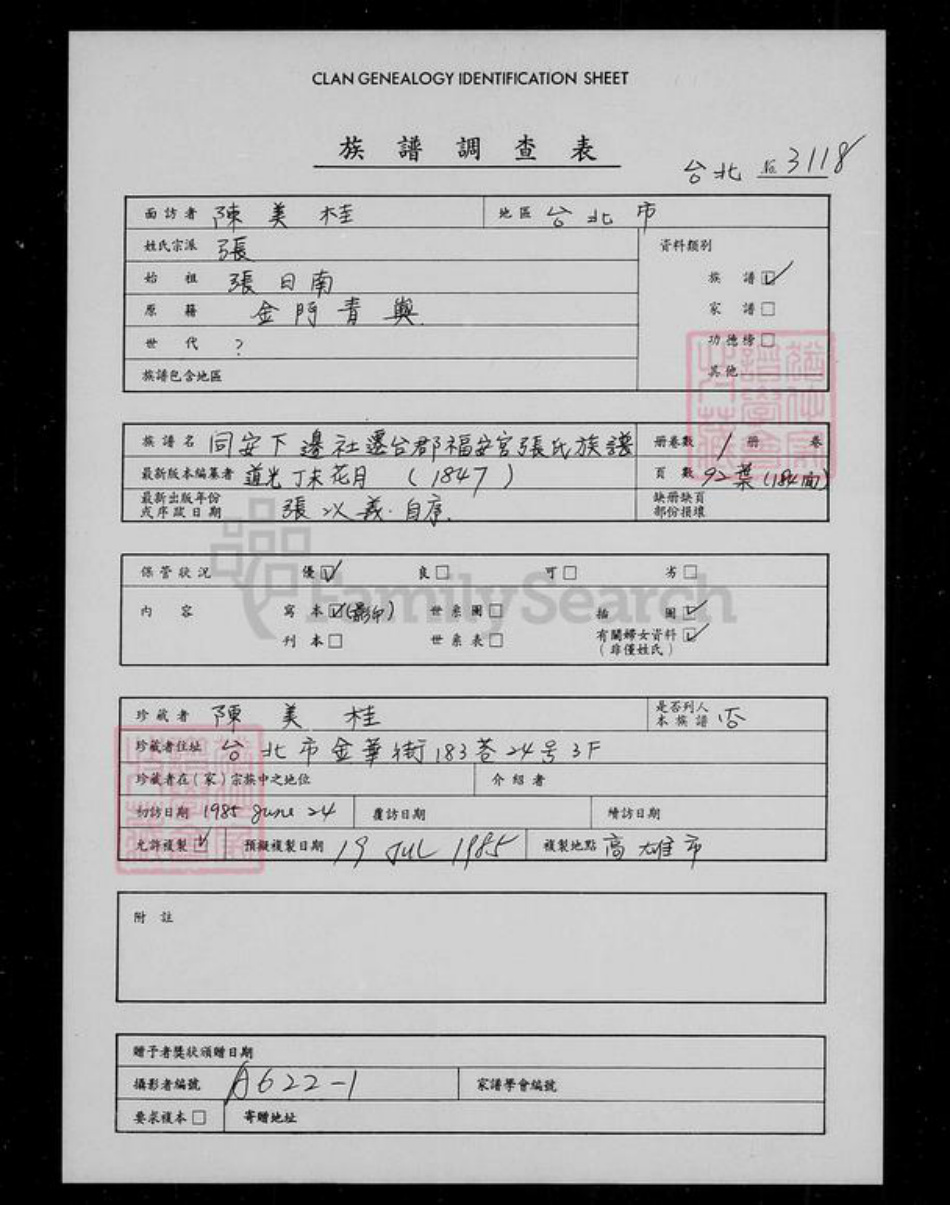 CLAN GENEALOGY IDENTIFICATION SHEET
族譜調查表
台北 No. 3118
面訪者 陳美桂 地區 台北市
姓氏宗派 張 資料類別
始祖 張日南 族譜☑
原籍 金門青與 家譜□
世代 ? 功德榜□
族譜包含地區 其他
族譜名 同安下邊社遷台郡福安宮張氏族譜 册卷數 1 册 卷
最新版本編纂者 道光丁未花月 (1847) 頁數 92葉(184面)
最新出版年份或序跋日期 張以義·自序. 缺册缺頁部份損壞
保管狀況 優☑ 良□ 可□ 劣□
內容 寫本☑(影印) 世系圖□ 插圖☑
刊本□ 世系表□ 有關婦女資料☑(非僅姓氏)
FamilySearch
珍藏者 陳美桂 是否列入本族譜 否
珍藏者住址 台北市金華街183巷24号3F
珍藏者在(家)宗族中之地位 介紹者
初訪日期 1985 June 24 覆訪日期 續訪日期
允許複製☑ 預擬複製日期 19 JUL 1985 複製地點 高雄市
附註
贈予者獎狀頒贈日期
攝影者編號 A622-1 家譜學會編號
要求複本□ 寄贈地址